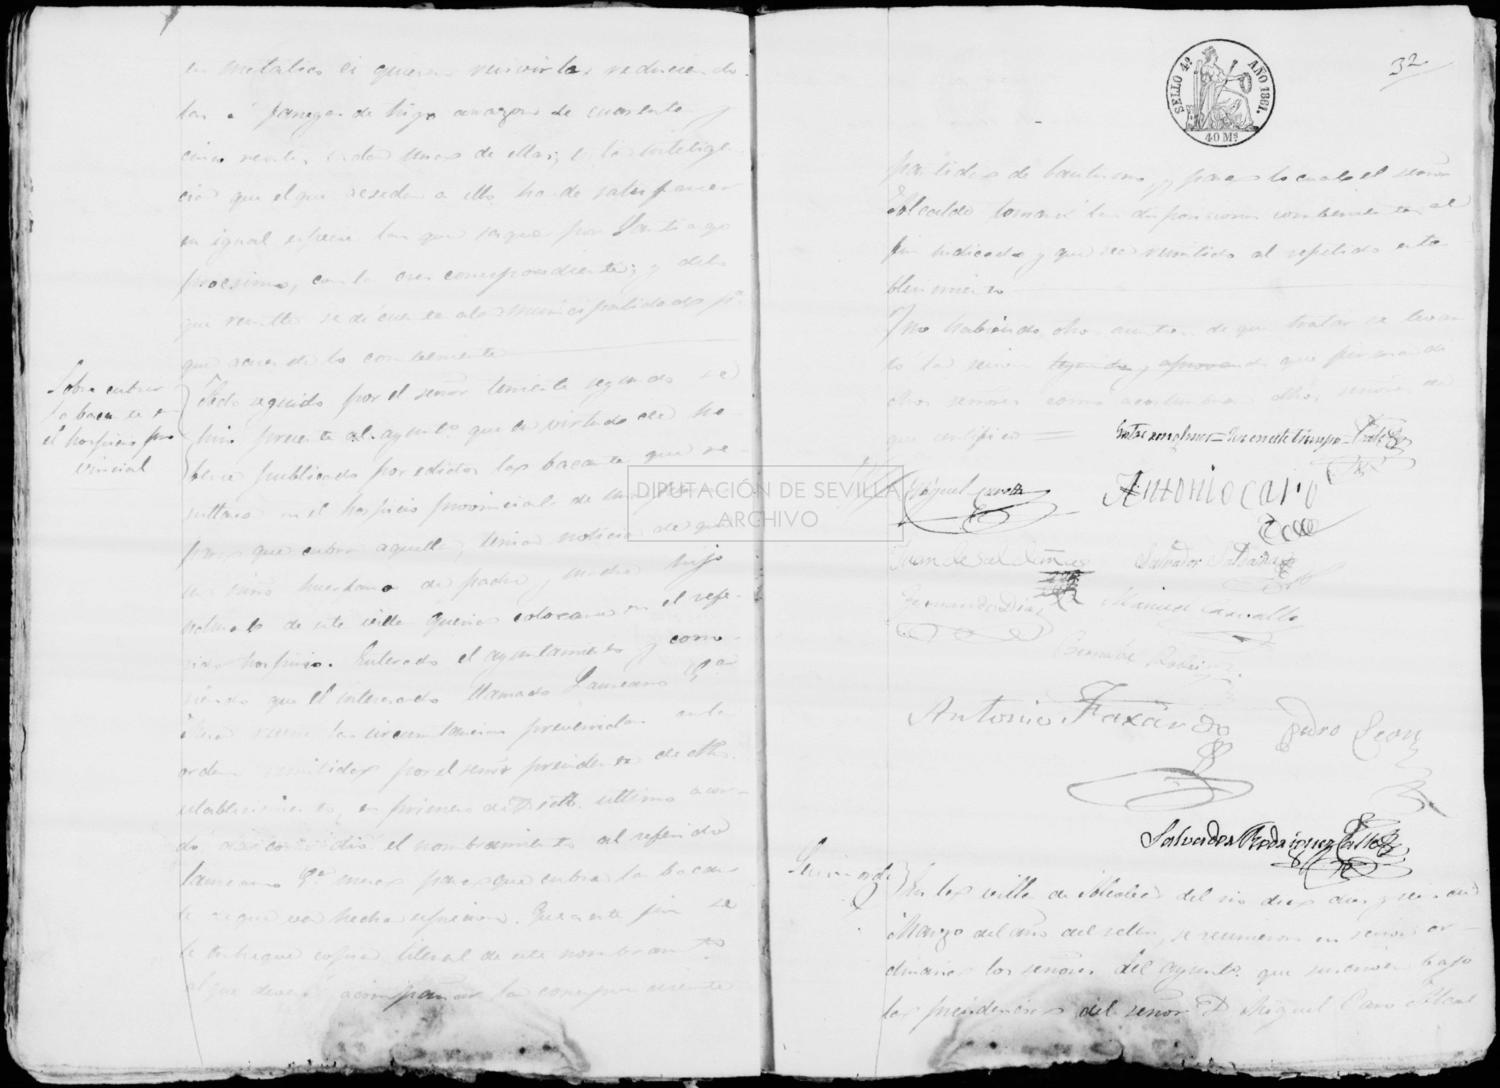 en metalico si quieren recivirla reduciendo
las a fanegas de trigo a razon de cuarenta y
cinco reales cada una de ellas, en la intelige
cia que el que acceda a ello ha de satisfacer
en igual especie las que saque por Santiago
procsimo, con la crez correspondiente; y de lo
que resulte se dé cuenta a la municipalidad pª
que acuerde lo combeniente
Sobre cubrir
la bacante en
el hospicio pro
vincial
Acto seguido por el señor teniente segundo se
hizo presente al ayuntº que en virtud de ha-
berse publicado por edictos la bacante que re-
sultava en el hospicio provincial de
para que cubra aquella, tenia noticia de que
un niño huerfano de padre y madre hijo
natural de esta villa querian colocarse en el refe-
rido hospicio. Enterado el ayuntamiento y como
siendo que el interesado llamado Laureano Gar
reune las circunstancias prevenidas en la
orden remitida por el señor presidente de dho.
establecimiento, en primero de último acor-
dó el nombramiento al referido
Laureano Gª para que cubra la bacan
te de que va hecha espresion. Que a este fin se
le entregue copia literal de este nombramtº
al que deverá acompañar la correspondiente
SELLO 4º AÑO 1861.
40 Ms
32
partida de bautismo, y para lo cual el señor
Alcalde tomará las disposiciones combenientes al
fin indicado y que sea remitido al repetido esta
blecimiento
Y no habiendo otros asuntos de que tratar se levan
tó la sesion leyenda y aprovanda que firman di
chos señores como acostumbran dhos. señores de
que certifico =
Entre renglones = Que en este tiempo =
DIPUTACIÓN DE SEVILLA
ARCHIVO
Miguel Caro
Antonio Caro
Juan de Saldaña
Salvador Saldaña
Fernando Diaz
Manuel Carvallo
Bernave Rodrig
Antonio Faxardo
Pedro Leon
Salvador Rodriguez Calle
Sesion de
En la villa de Alcolea del rio dia diez y seis de
Marzo del año del sello, se reunieron en sesion or-
dinaria los señores del ayuntº que suscriven bajo
la presidencia del señor D Miguel Caro Alcal